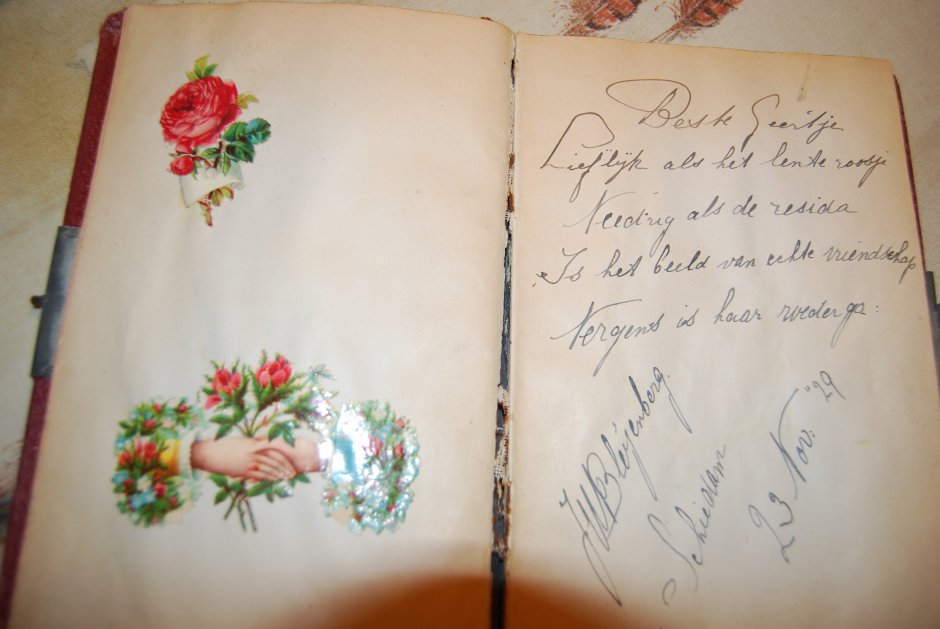 Beste Geertje
Lieflijk als het lente roosje
Needrig als de resida
Is het beeld van echte vriendschap
Nergens is haar wederga.
Bleijenberg.
Schiedam
23 Nov. '29